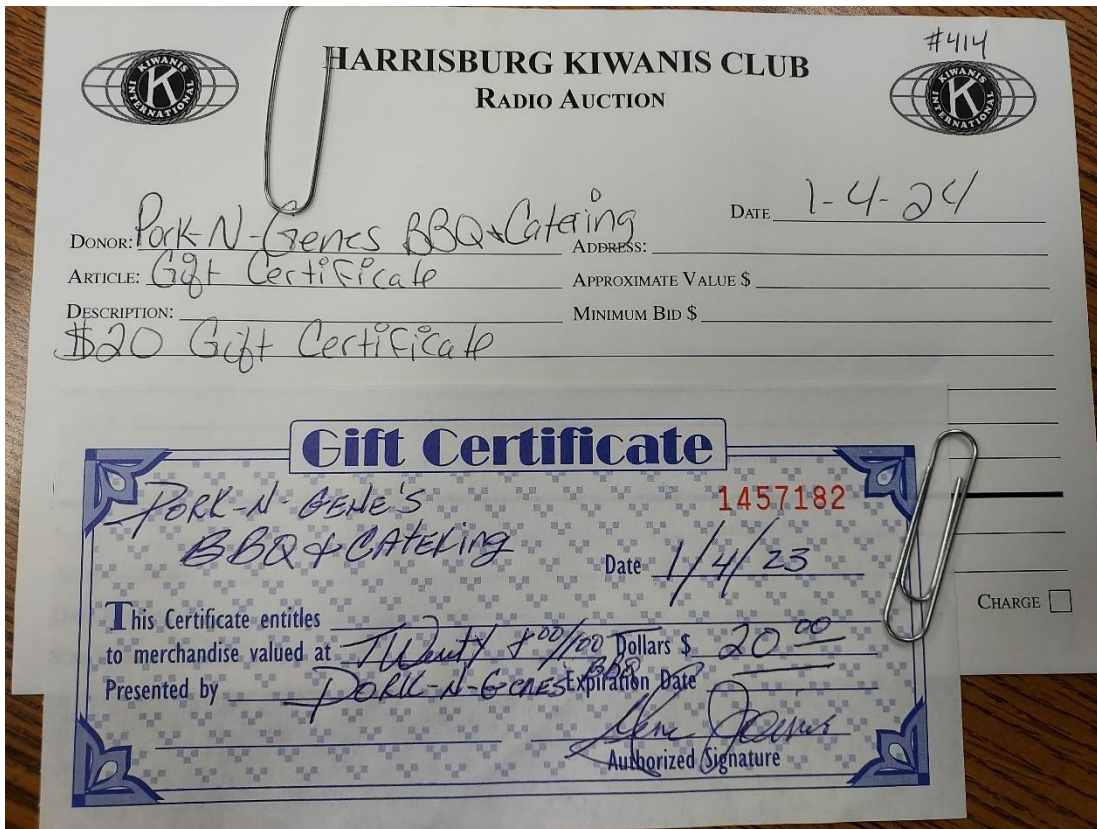 #414
HARRISBURG KIWANIS CLUB
RADIO AUCTION
KIWANIS INTERNATIONAL
K
KIWANIS INTERNATIONAL
K
DATE 1-4-24
DONOR: Pork-N-Genes BBQ & Catering ADDRESS:
ARTICLE: Gift Certificate APPROXIMATE VALUE $
DESCRIPTION: MINIMUM BID $
$20 Gift Certificate
Gift Certificate
PORK-N-GENE'S 1457182
BBQ & CATERing
Date 1/4/23
This Certificate entitles
to merchandise valued at TWenty & 00/100 Dollars $ 20.00
Presented by PORK-N-GENES BBQ Expiration Date
Gene
Authorized Signature
CHARGE